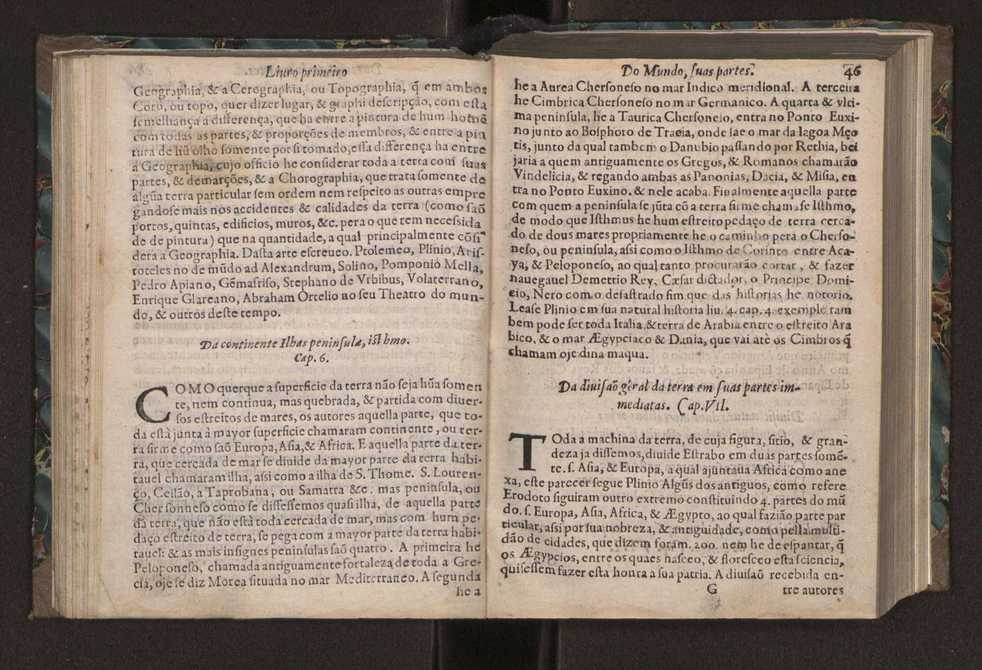 Liuro primeiro
Geographia, & a Corographia, ou Topographia, q̃ em ambos
Coro, ou topo, quer dizer lugar, & graphi descripção, com esta
semelhança a differença, que ha entre a pintura de hum homẽ
com todas as partes, & proporções de membros, & entre a pin
tura de hũ olho somente por si tomado, essa differença ha entre
a Geographia, cujo officio he considerar toda a terra com suas
partes, & demarções, & a Chorographia, que trata somente de
algũa terra particular sem ordem nem respeito as outras empre
gandose mais nos accidentes & calidades da terra (como saõ
portos, quintas, edificios, muros, &c. pera o que tem necessida
de de pintura) que na quantidade, a qual principalmente cõsi
dera a Geographia. Dasta arte escreueo. Ptolemeo, Plinio, Aris-
toteles no de mũdo ad Alexandrum, Solino, Pomponio Mella,
Pedro Apiano, Gẽmafriso, Stephano de Vrbibus, Volaterrano,
Enrique Glareano, Abraham Ortelio no seu Theatro do mun-
do, & outros deste tempo.
Da continente Ilhas peninsulæ, isthmo.
Cap. 6.
COMO quer que a superficie da terra não seja hũa somen
te, nem continua, mas quebrada, & partida com diuer-
sos estreitos de mares, os autores aquella parte, que to-
da està junta à mayor superficie chamaram continente, ou ter-
ra firme como saõ Europa, Asia, & Africa. E aquella parte da ter-
ra, que cercada de mar se diuide da mayor parte da terra habi-
tauel chamaram ilha, assi como a ilha de S. Thome. S. Louren-
ço, Ceilão, a Taprobana, ou Samatra &c. mas peninsula, ou
Chersonneso como se dissessemos quasi ilha, de aquella parte
da terra, que não està toda cercada de mar, mas com hum pe-
daço estreito de terra, se pega com a mayor parte da terra habi-
tauel: & as mais insignes peninsulas saõ quatro. A primeira he
Peloponeso, chamada antiguamente fortaleza de toda a Gre-
cia, oje se diz Morea situada no mar Mediterraneo. A segunda
he a
Do Mundo, suas partes.
46
he a Aurea Chersoneso no mar Indico meridional. A terceira
he Cimbrica Chersoneso no mar Germanico. A quarta & vlti-
ma peninsula, he a Taurica Chersoneso, entra no Ponto Euxi-
no junto ao Bosphoro de Tracia, onde sae o mar da lagoa Meo
tis, junto da qual tambem o Danubio passando por Rethia, bei
jaria a quem antiguamente os Gregos, & Romanos chamarão
Vindelicia, & regando ambas as Panonias, Dacia, & Misia, en
tra no Ponto Euxino. & nele acaba. Finalmente aquella parte
com quem a peninsula se jũta cõ a terra firme chamase Isthmo,
de modo que Isthmus he hum estreito pedaço de terra cerca-
do de dous mares propriamente he o caminho pera o Cherso-
neso, ou peninsula, assi como o Isthmo de Corinto entre Aca-
ya, & Peloponeso, ao qual tanto procurarão cortar, & fazer
nauegauel Demetrio Rey, Cæsar dictador, o Principe Domi-
cio, Nero com o desastrado fim que das historias he notorio.
Lease Plinio em sua natural historia liu. 4. cap. 4. exemplo tam
bem pode ser toda Italia, & terra de Arabia entre o estreito Ara
bico, & o mar Ægypciaco & Dania, que vai atè os Cimbros q̃
chamam oje dinamaqua.
Da diuisaõ gèral da terra em suas partes im-
mediatas. Cap. VII.
TOda a machina da terra, de cuja figura, sitio, & gran-
deza ja dissemos, diuide Estrabo em duas partes somẽ-
te. s. Asia, & Europa, a qual ajuntaua Africa como ane
xa, este parecer segue Plinio Algũs dos antiguos, como refere
Erodoto siguiram outro extremo constituindo 4. partes do mũ
do. s. Europa, Asia, Africa, & Ægypto, ao qual fazião parte par
ticular, assi por sua nobreza, & antiguidade, como pella multi-
dão de cidades, que dizem foram. 200. nem he de espantar, q̃
os Ægypcios, entre os quaes nasceo, & floresceo esta sciencia,
quisessem fazer esta honra a sua patria. A diuisaõ recebida en-
G
tre autores